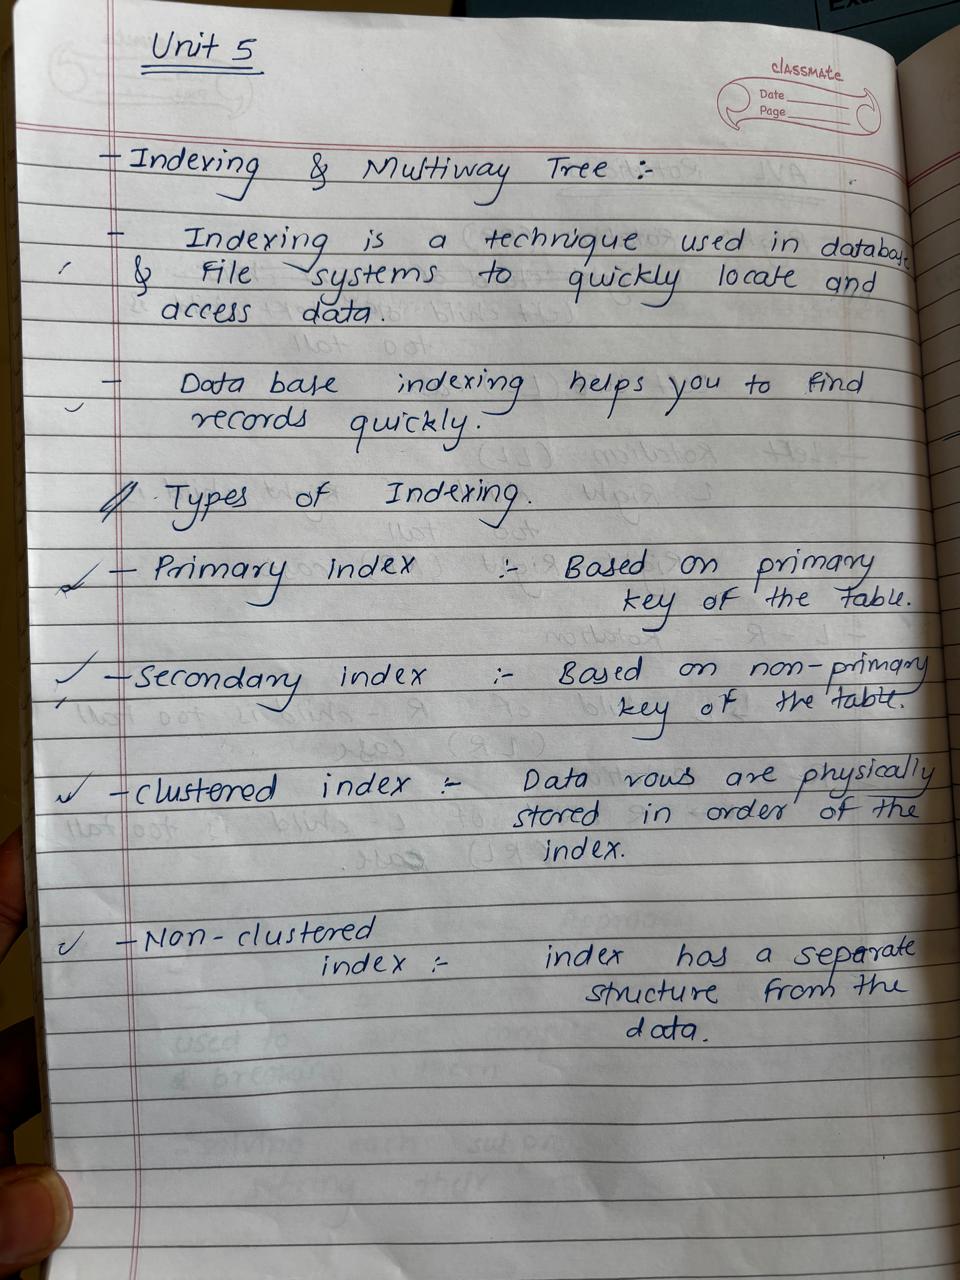 Unit 5
classmate
Date
Page
- Indexing & Multiway Tree :-
- Indexing is a technique used in database
& File systems to quickly locate and
access data.
- Data base indexing helps you to find
records quickly.
Types of Indexing.
- Primary index :- Based on primary
key of the table.
- Secondary index :- Based on non-primary
key of the table.
- clustered index :- Data rows are physically
stored in order of the
index.
- Non-clustered
index :- index has a separate
structure from the
data.